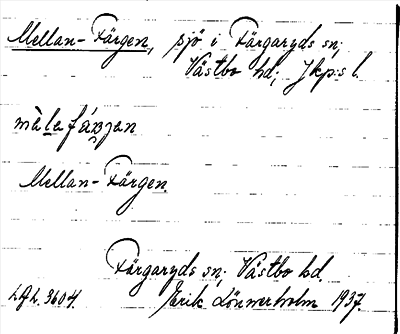 Mellan-Färgen, sjö i Färgaryds sn;
Västbo hd; Jkps l.
Mellan-Färgen
Färgaryds sn; Västbo hd.
Erik Lönnerholm 1937.